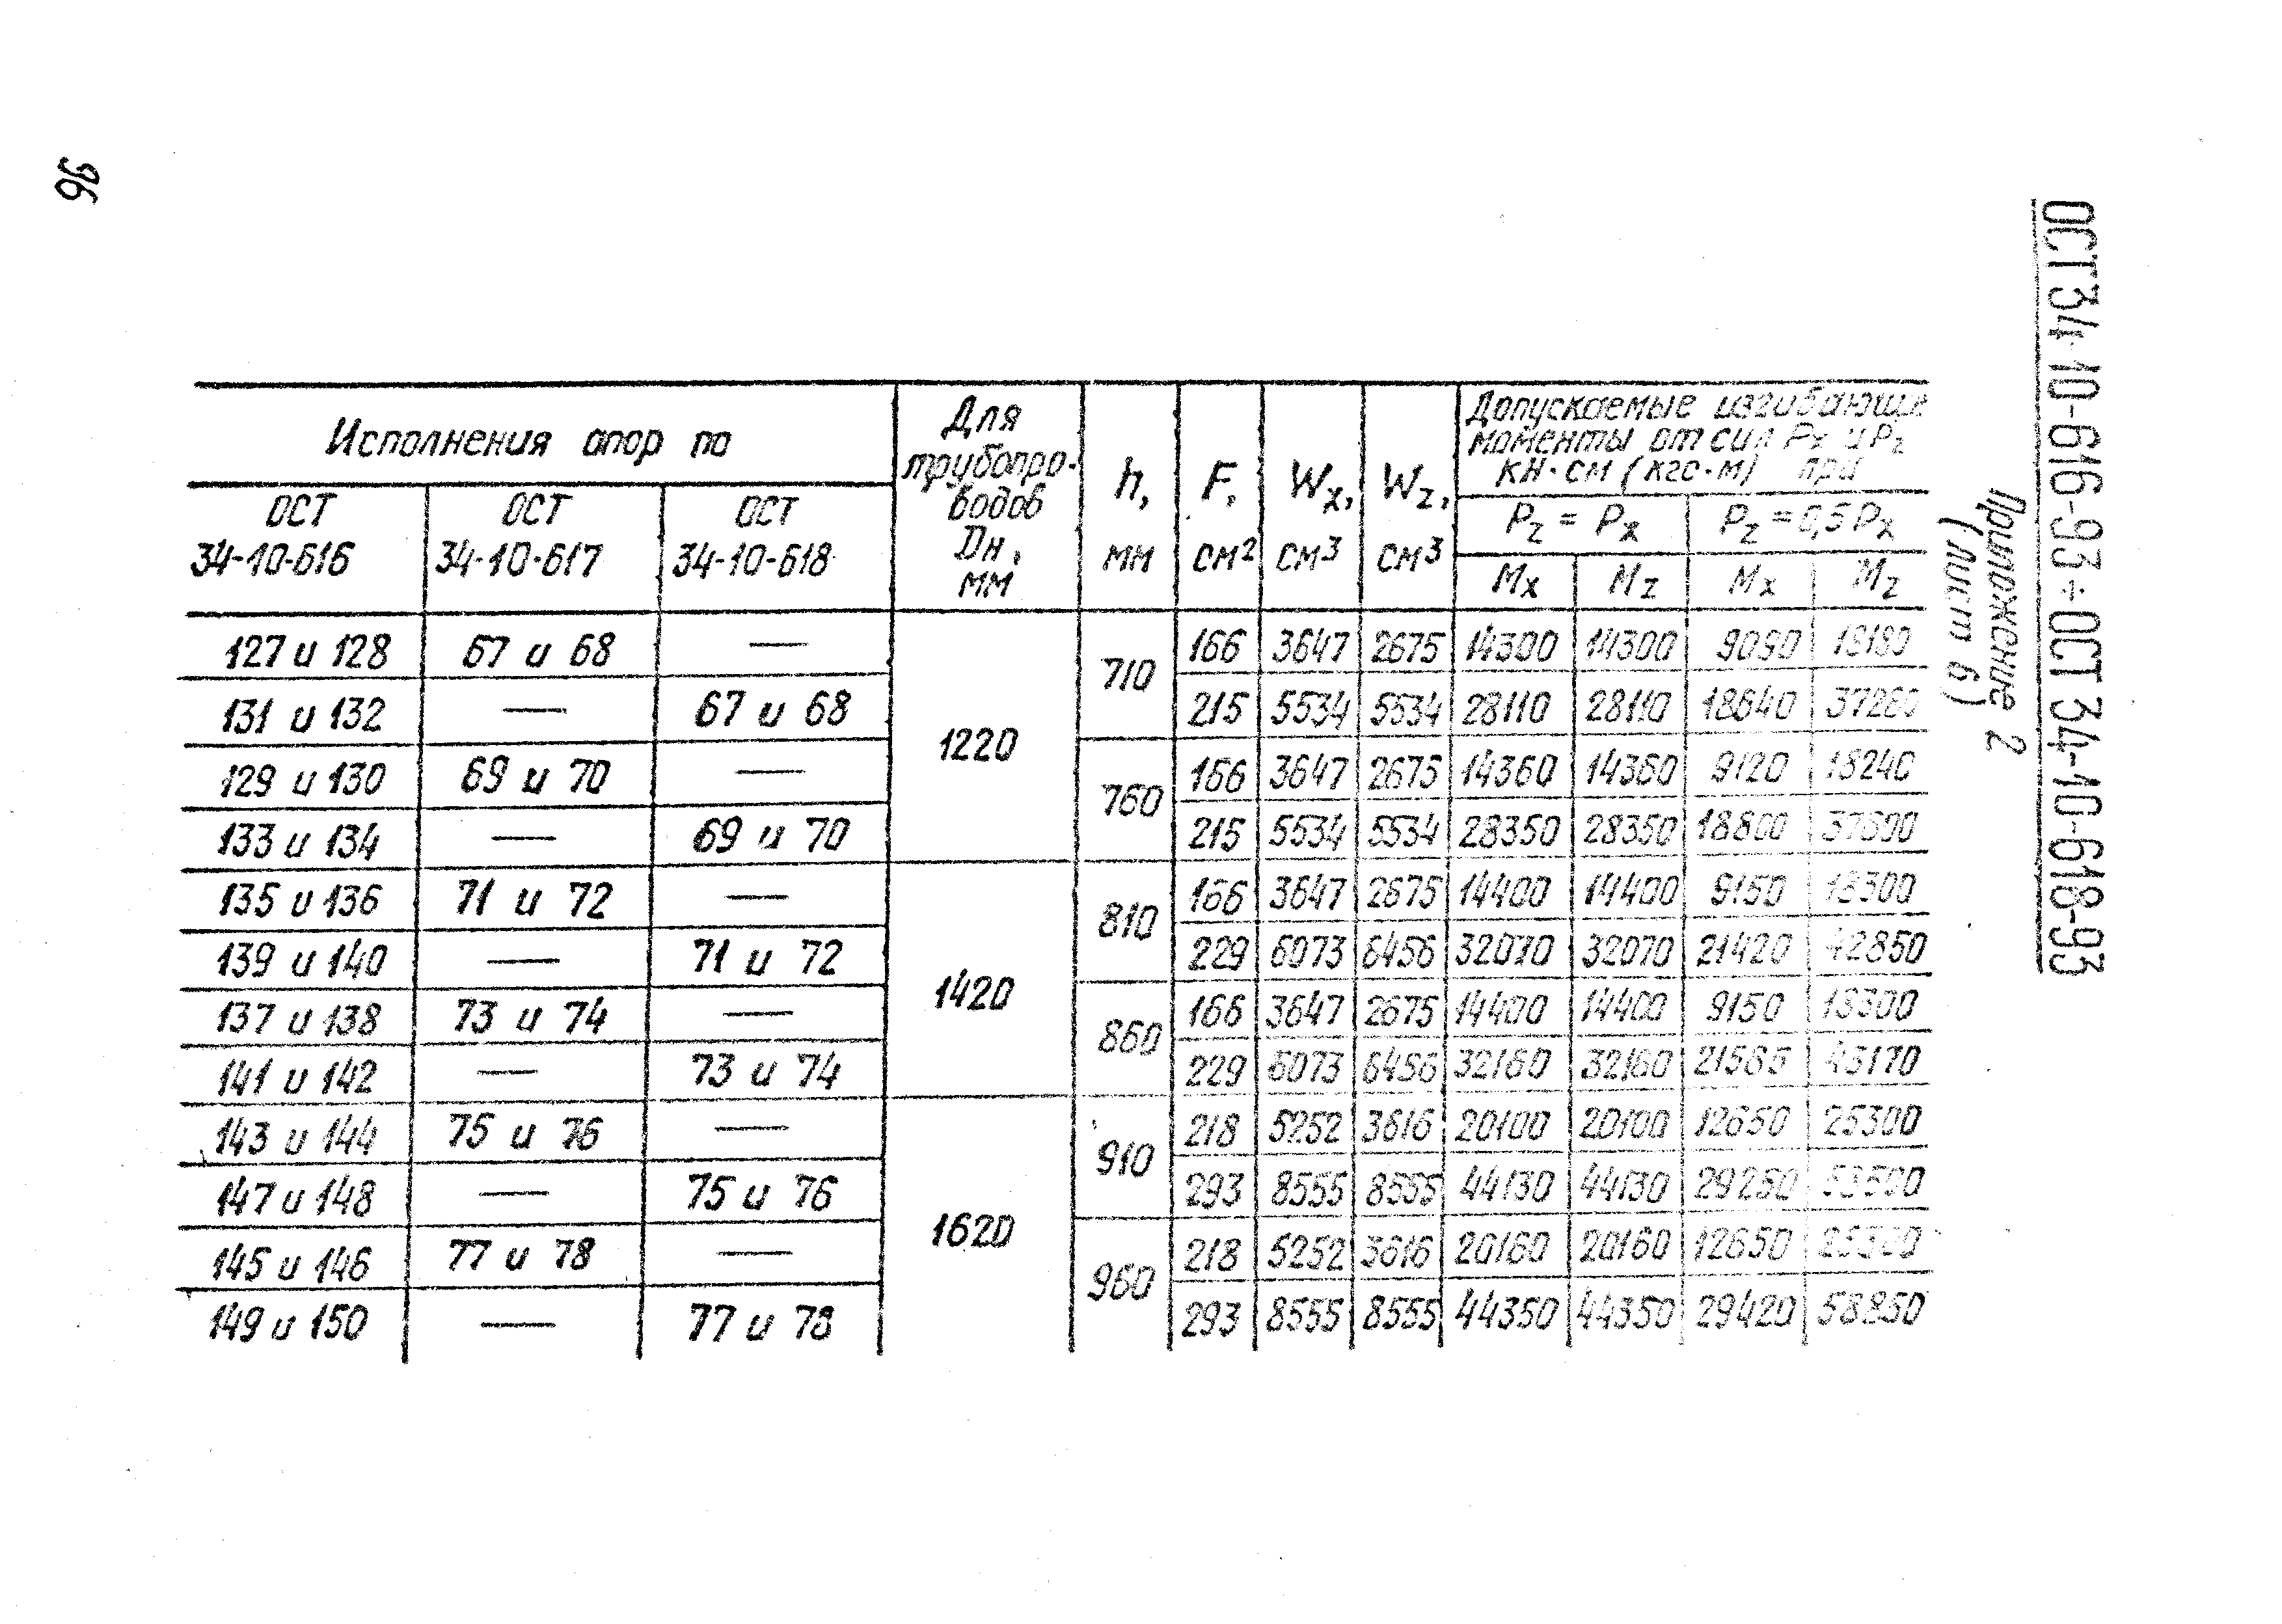 96
ОСТ 34-10-616-93÷ОСТ 34-10-618-93
Приложение 2
(лист 6)
Исполнения опор по
Для трубопро-водов Dн, мм
h, мм
F, см²
Wx, см³
Wz, см³
Допускаемые изгибающие
моменты от сил Px и Pz
кН·см (кгс·м) при
ОСТ 34-10-616 ОСТ 34-10-617 ОСТ 34-10-618
Pz = Px Pz = 0,5 Px
Mx Mz Mx Mz
127 и 128 67 и 68 — 1220 710 166 3647 2675 14300 14300 9090 18180
131 и 132 — 67 и 68 215 5534 5534 28110 28110 18640 37280
129 и 130 69 и 70 — 760 166 3647 2675 14360 14360 9120 18240
133 и 134 — 69 и 70 215 5534 5534 28350 28350 18800 37600
135 и 136 71 и 72 — 1420 810 166 3647 2675 14400 14400 9150 18300
139 и 140 — 71 и 72 229 6073 6456 32070 32070 21420 42850
137 и 138 73 и 74 — 860 166 3647 2675 14400 14400 9150 18300
141 и 142 — 73 и 74 229 6073 6456 32160 32160 21585 43170
143 и 144 75 и 76 — 1620 910 218 5252 3616 20100 20100 12650 25300
147 и 148 — 75 и 76 293 8555 8555 44130 44130 29250
145 и 146 77 и 78 — 960 218 5252 3616 20160 20160 12650 25300
149 и 150 — 77 и 78 293 8555 8555 44350 44350 29420 58850